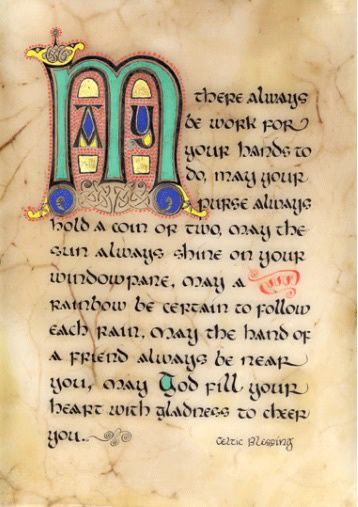 May there always
be work for
your hands to
do, may your
purse always
hold a coin or two, may the
sun always shine on your
windowpane, may a
rainbow be certain to follow
each rain, may the hand of
a friend always be near
you, may God fill your
heart with gladness to cheer
you.
Celtic Blessing